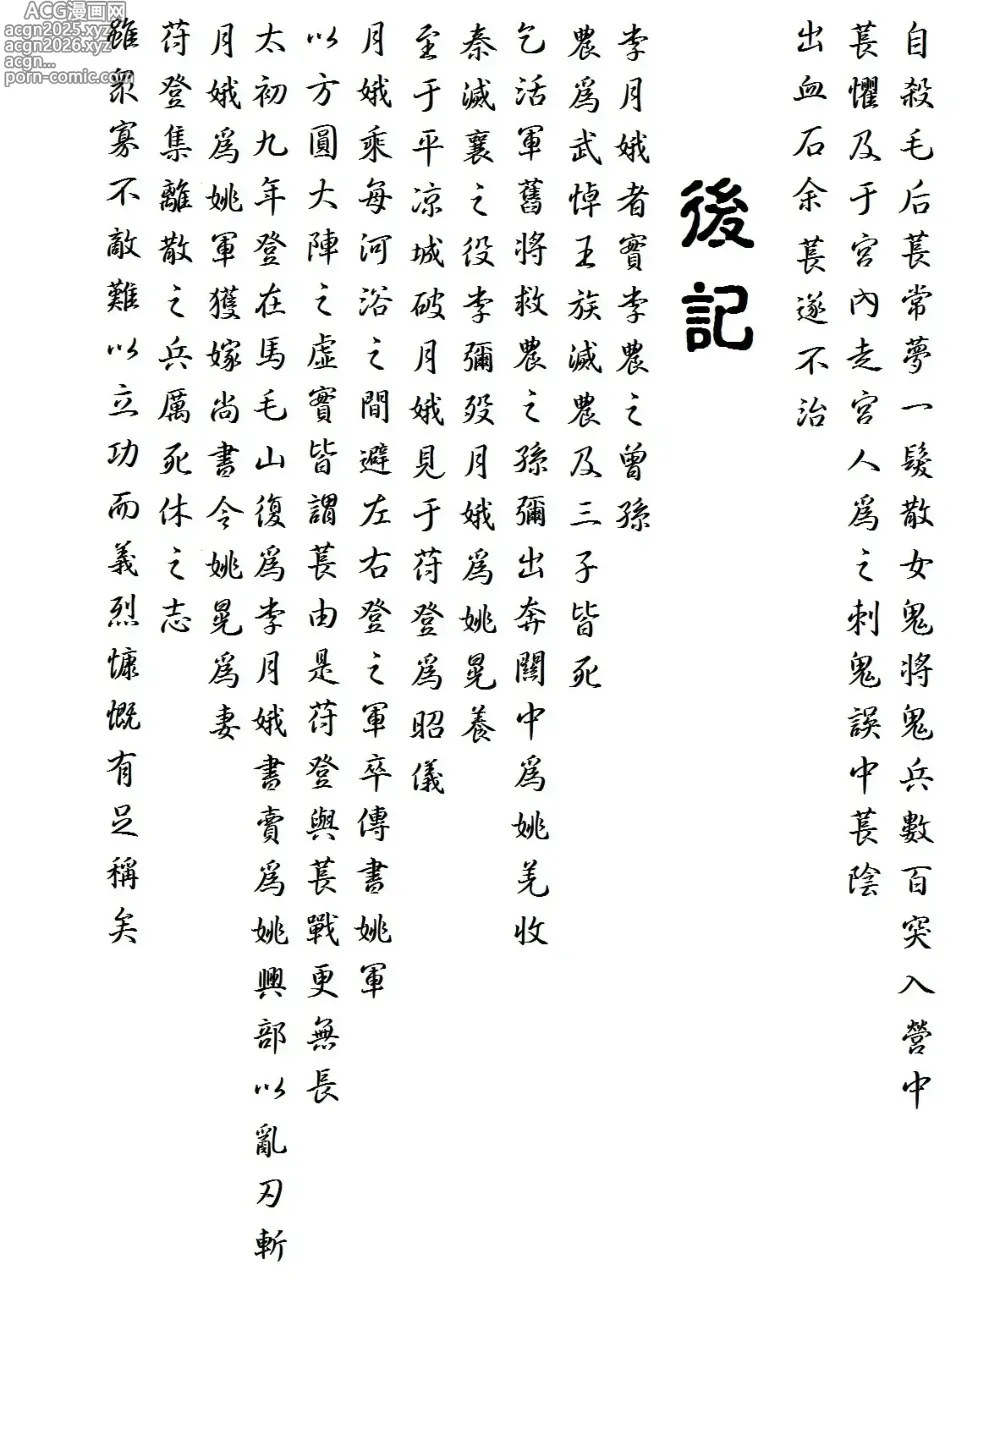 ACG漫画网
acgn2025.xyz
acgn2026.xyz
acgn...
porn-comic.com
自殺毛后萇常夢一髮散女鬼將鬼兵數百突入營中
萇懼及于宮內走宮人爲之刺鬼誤中萇陰
出血石余萇遂不治
後記
李月娥者實李農之曾孫
農爲武悼王族滅農及三子皆死
乞活軍舊將救農之孫彌出奔關中爲姚羌收
秦滅襄之役李彌歿月娥爲姚晃養
至于平凉城破月娥見于苻登爲昭儀
月娥乘每河浴之間避左右登之軍卒傳書姚軍
以方圓大陣之虛實皆謂萇由是苻登與萇戰更無長
太初九年登在馬毛山復爲李月娥書賣爲姚興部以亂刃斬
月娥爲姚軍獲嫁尚書令姚晃爲妻
苻登集離散之兵厲死休之志
雖衆寡不敵難以立功而義烈慷慨有足稱矣